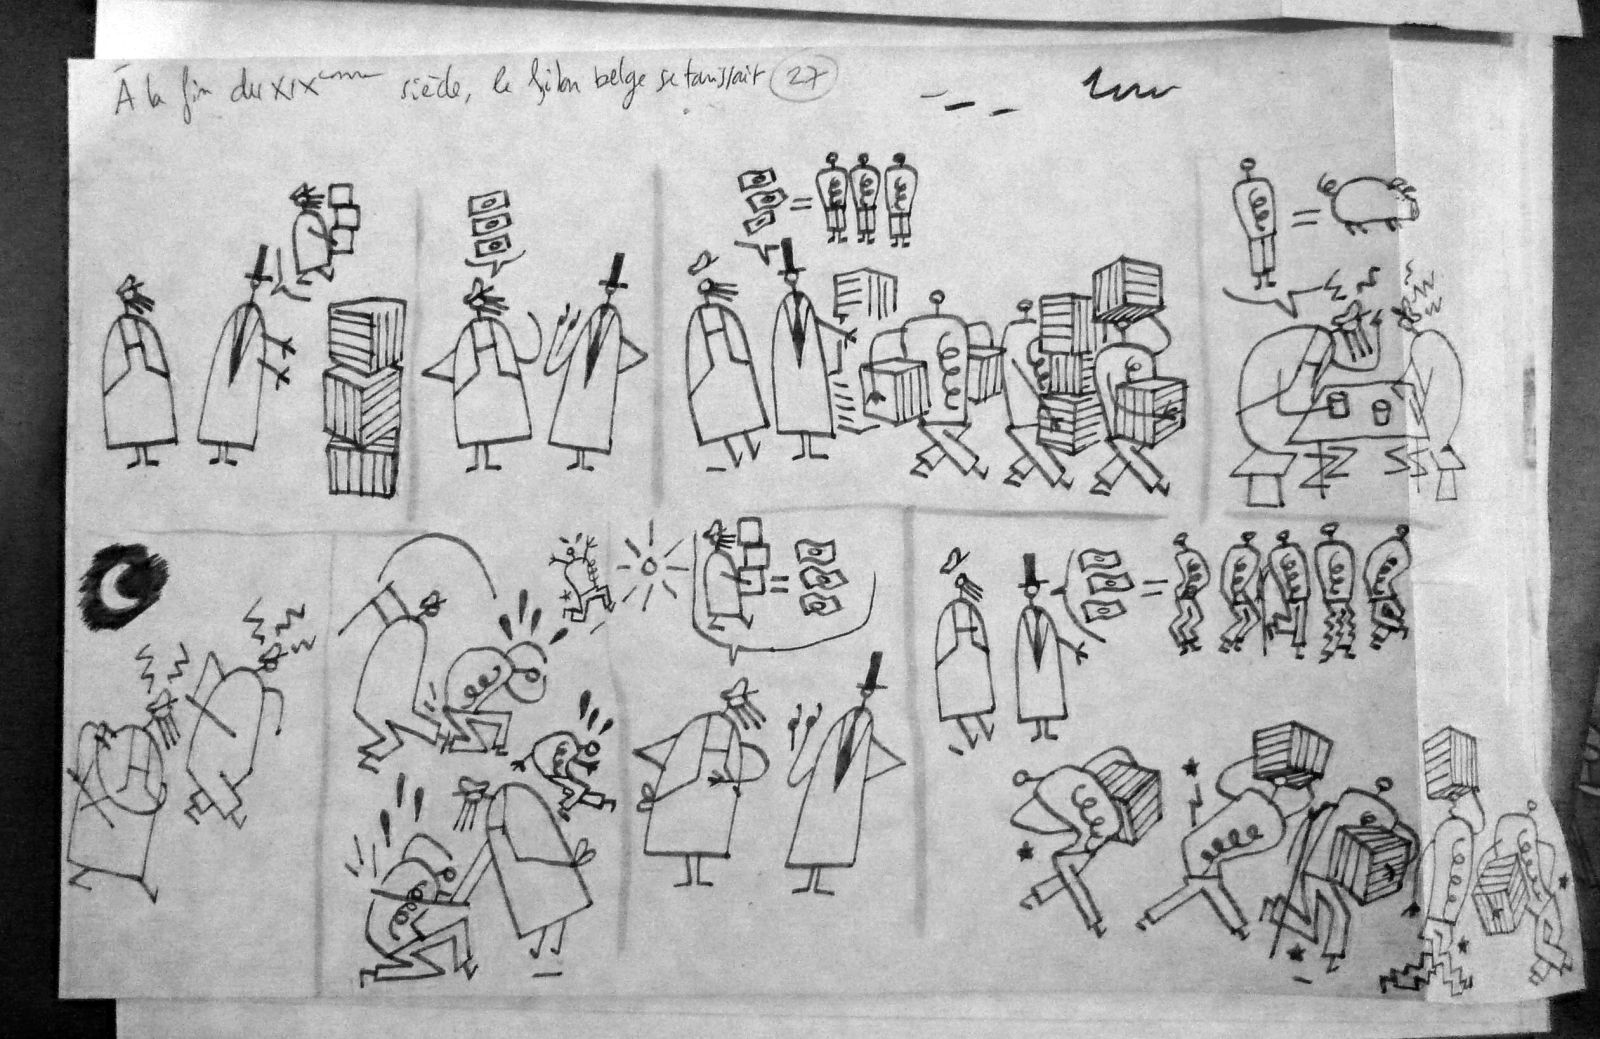 À la fin du XIXème siècle, le filon belge se tarissait 27